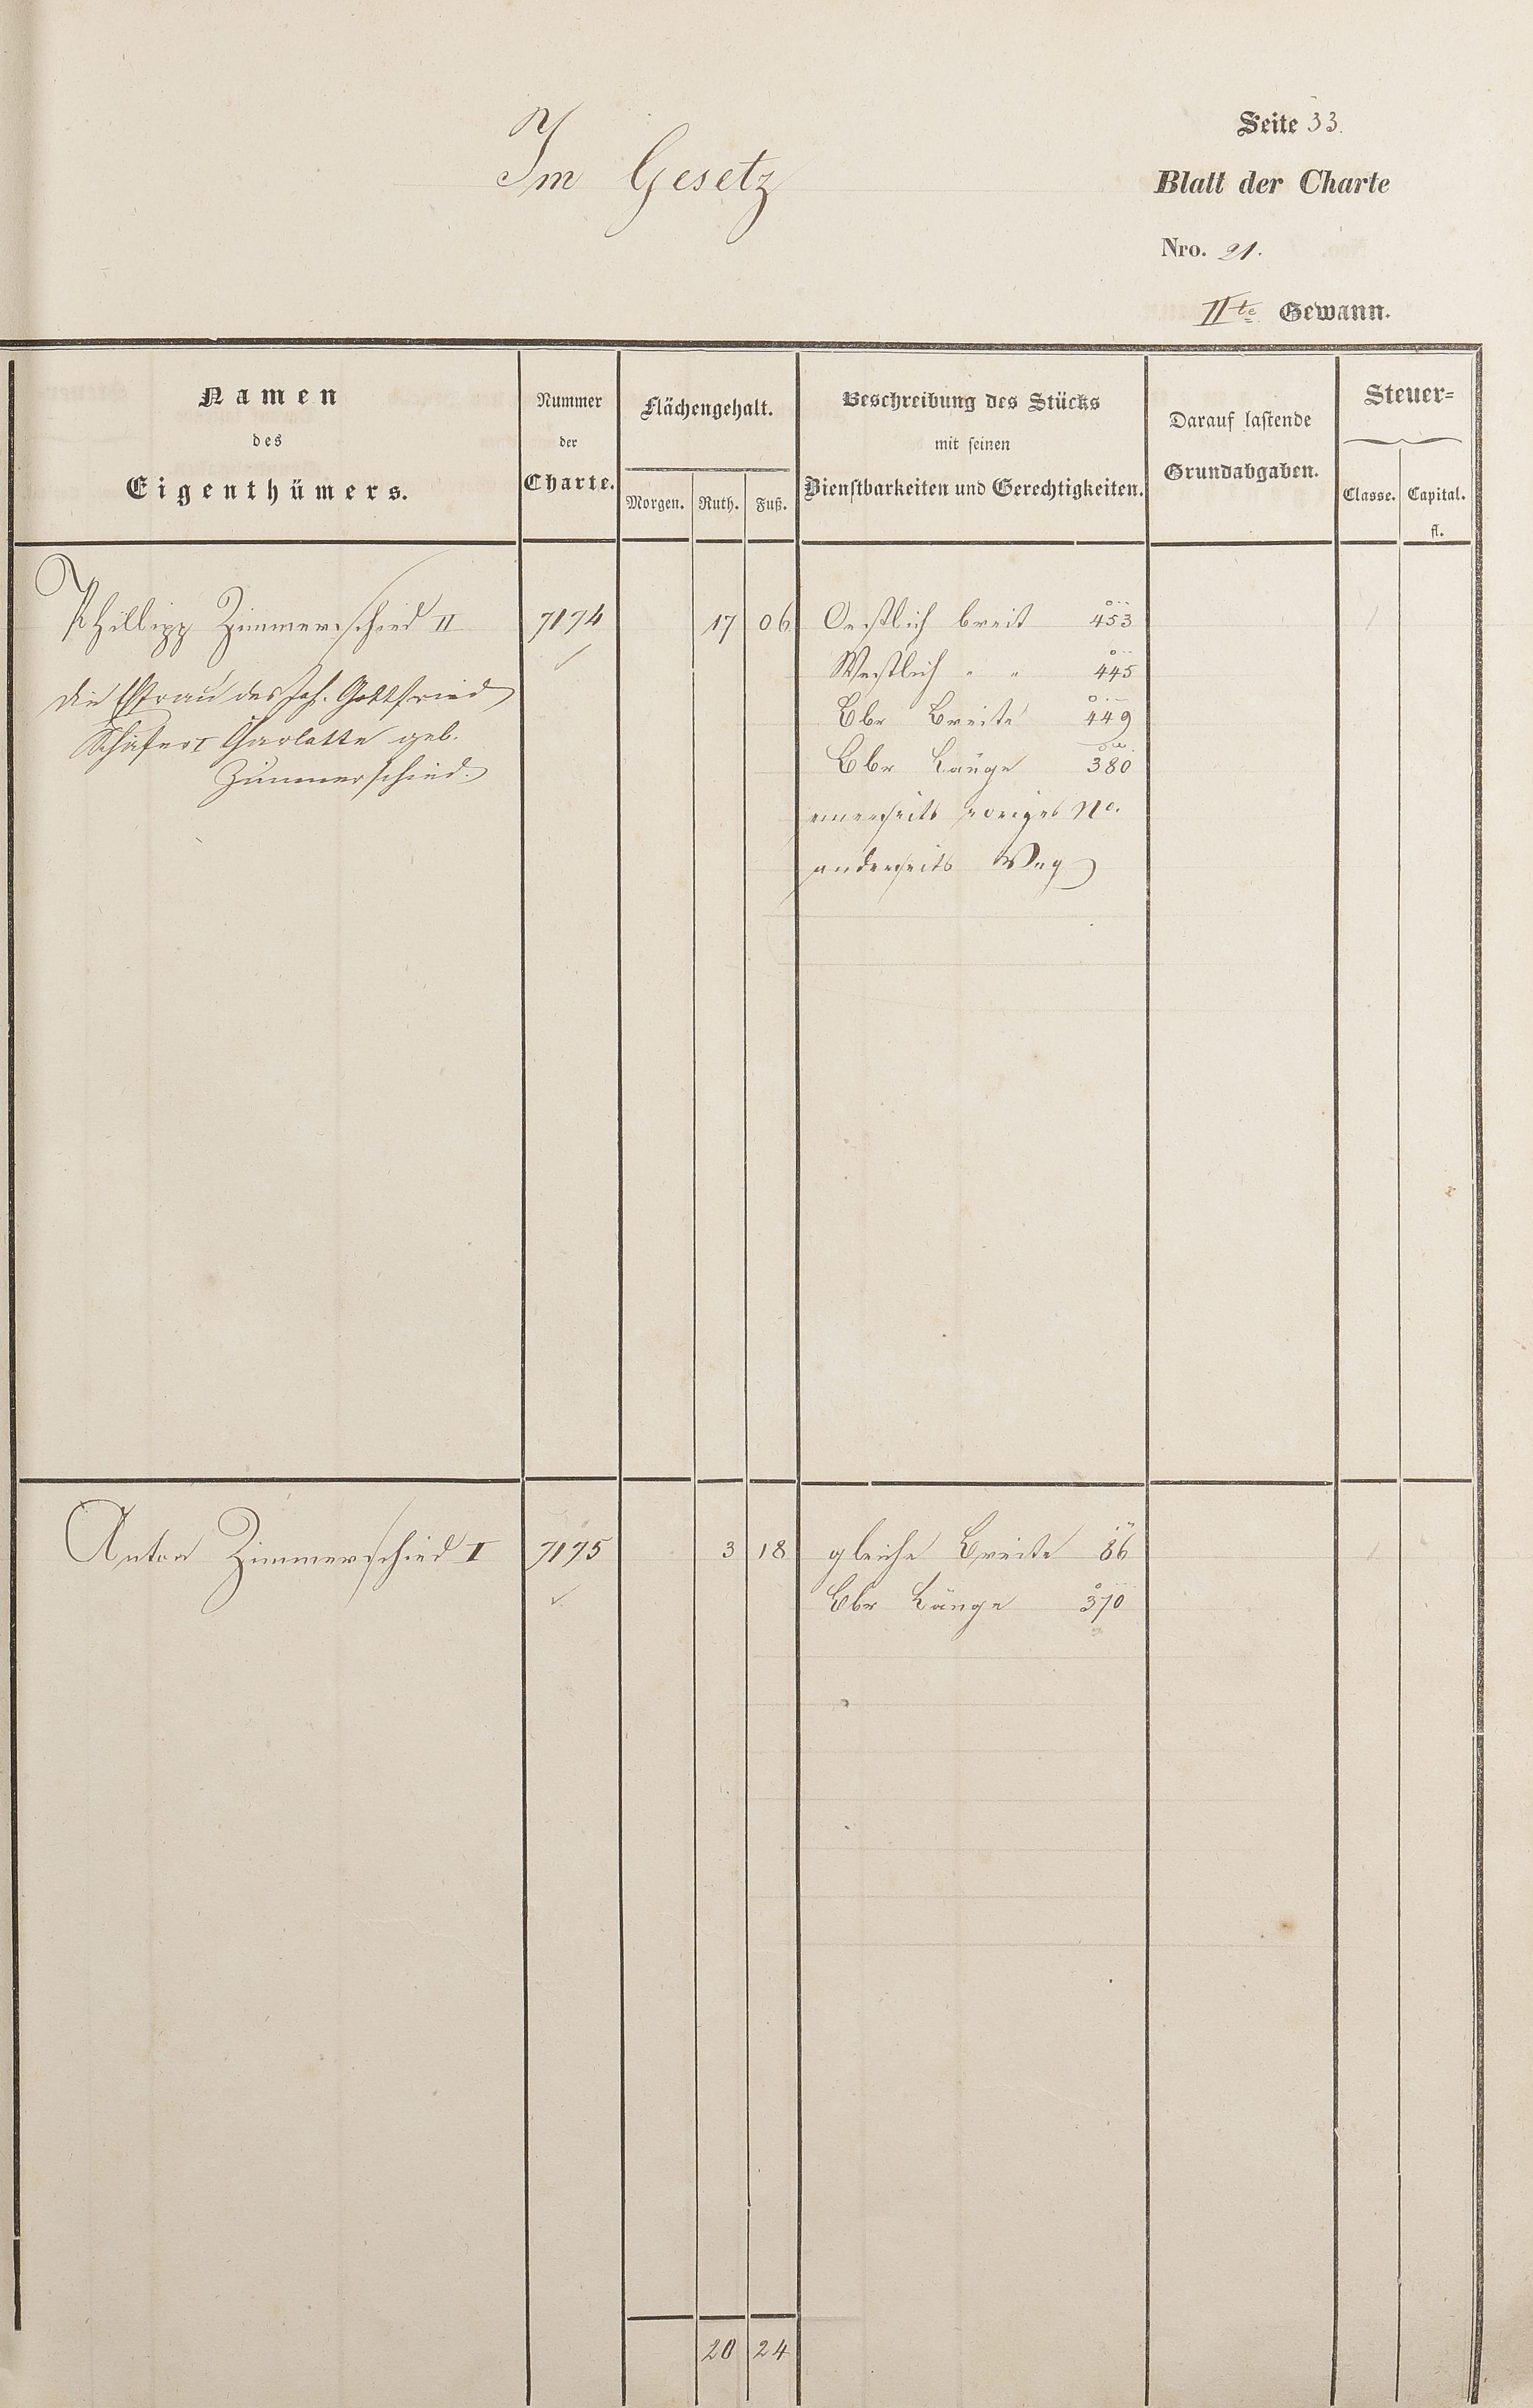 Im Gesetz
Seite 33.
Blatt der Charte
Nro. 21.
IIte Gewann.
Namen
des
Eigenthümers.
Nummer
der
Charte.
Flächengehalt.
Morgen. Ruth. Fuß.
Beschreibung des Stücks
mit seinen
Dienstbarkeiten und Gerechtigkeiten.
Darauf lastende
Grundabgaben.
Steuer=
Classe. Capital.
fl.
Phillipp Zimmerschied II 7174 17 06 Oestlich breit 453
Westlich " " 445
Die Ehfrau des Joh. Gottfried
Schäfer I Charlotte geb.
Zimmerschied.
Gbr Breite 449
Gbr Länge 380
einerseits voriges No.
anderseits Weg
Anton Zimmerschied I 7175 3 18 gleiche Breite 86
Gbr Länge 370
20 24